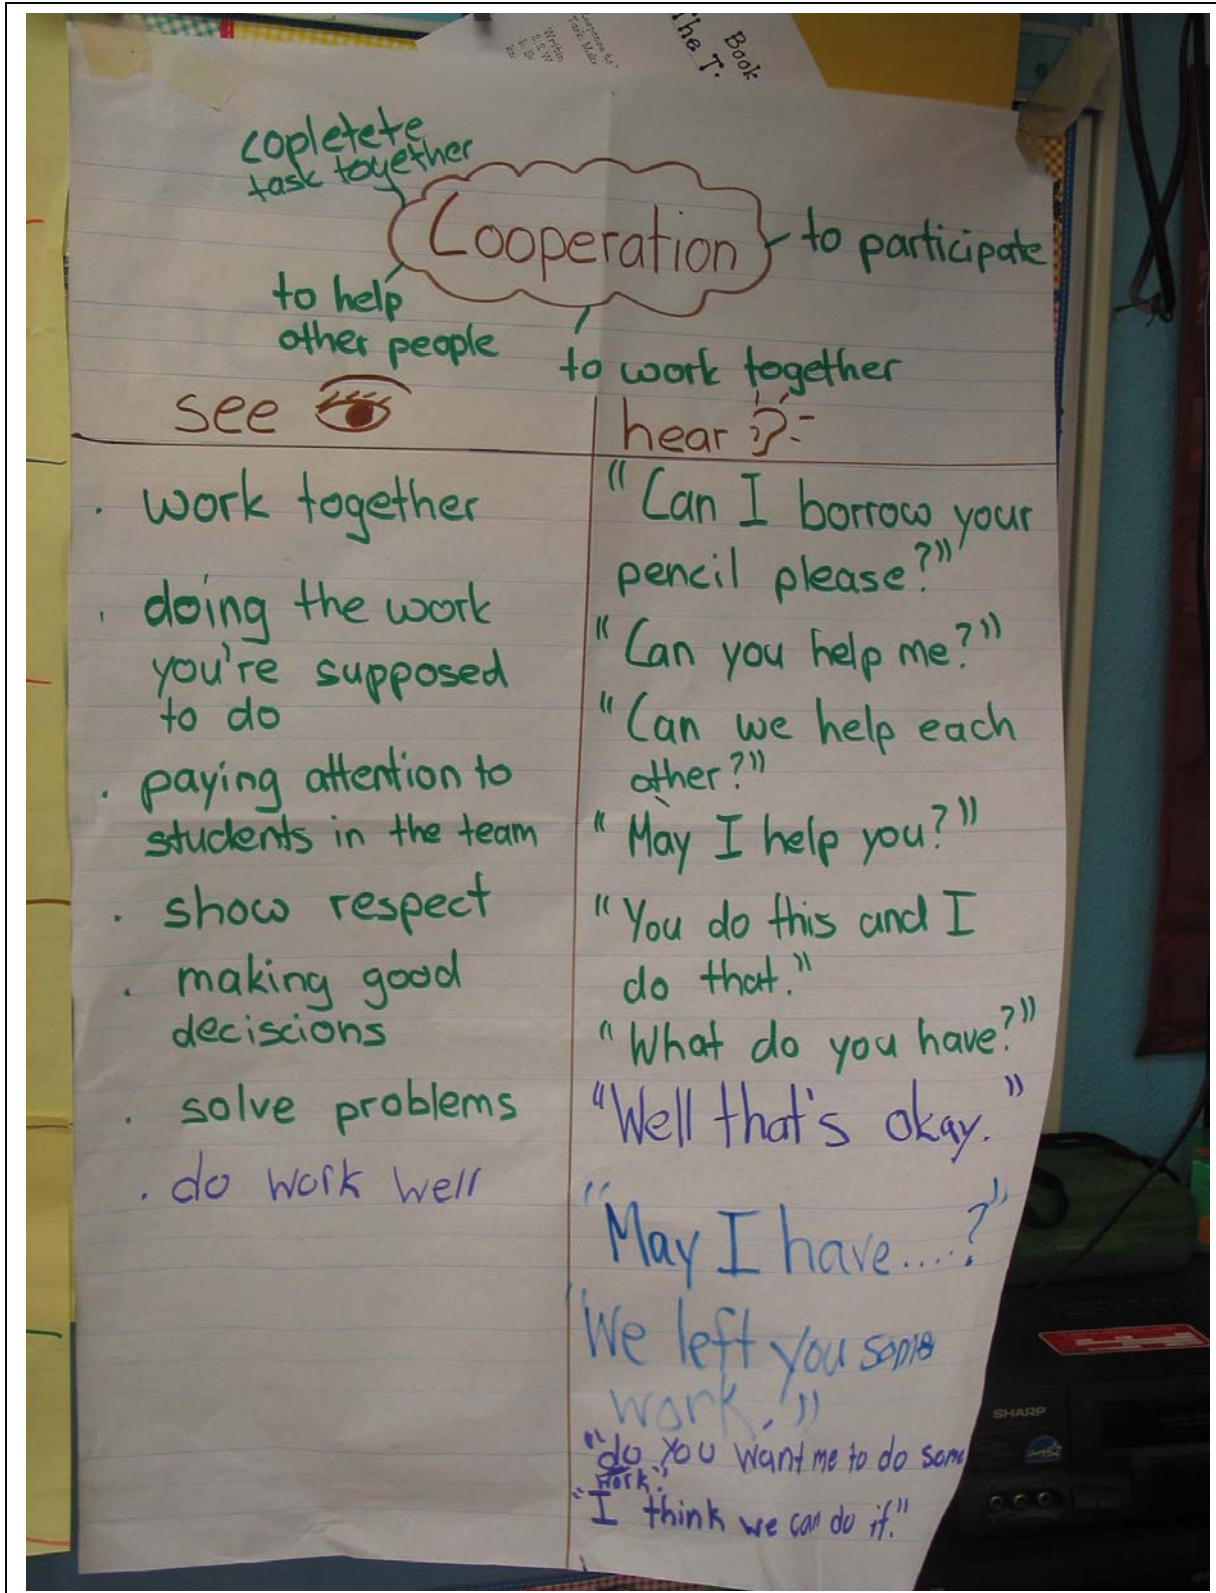 Book
The T.
copletete
task together
Cooperation
to participate
to help
other people
to work together
see
hear
. work together
. doing the work
you're supposed
to do
. paying attention to
students in the team
. show respect
. making good
deciscions
. solve problems
. do work well
"Can I borrow your
pencil please?"
"Can you help me?"
"Can we help each
other?"
"May I help you?"
"You do this and I
do that."
"What do you have?"
"Well that's okay."
"May I have....?"
"We left you some
work."
"do you want me to do some
work."
"I think we can do it."
SHARP